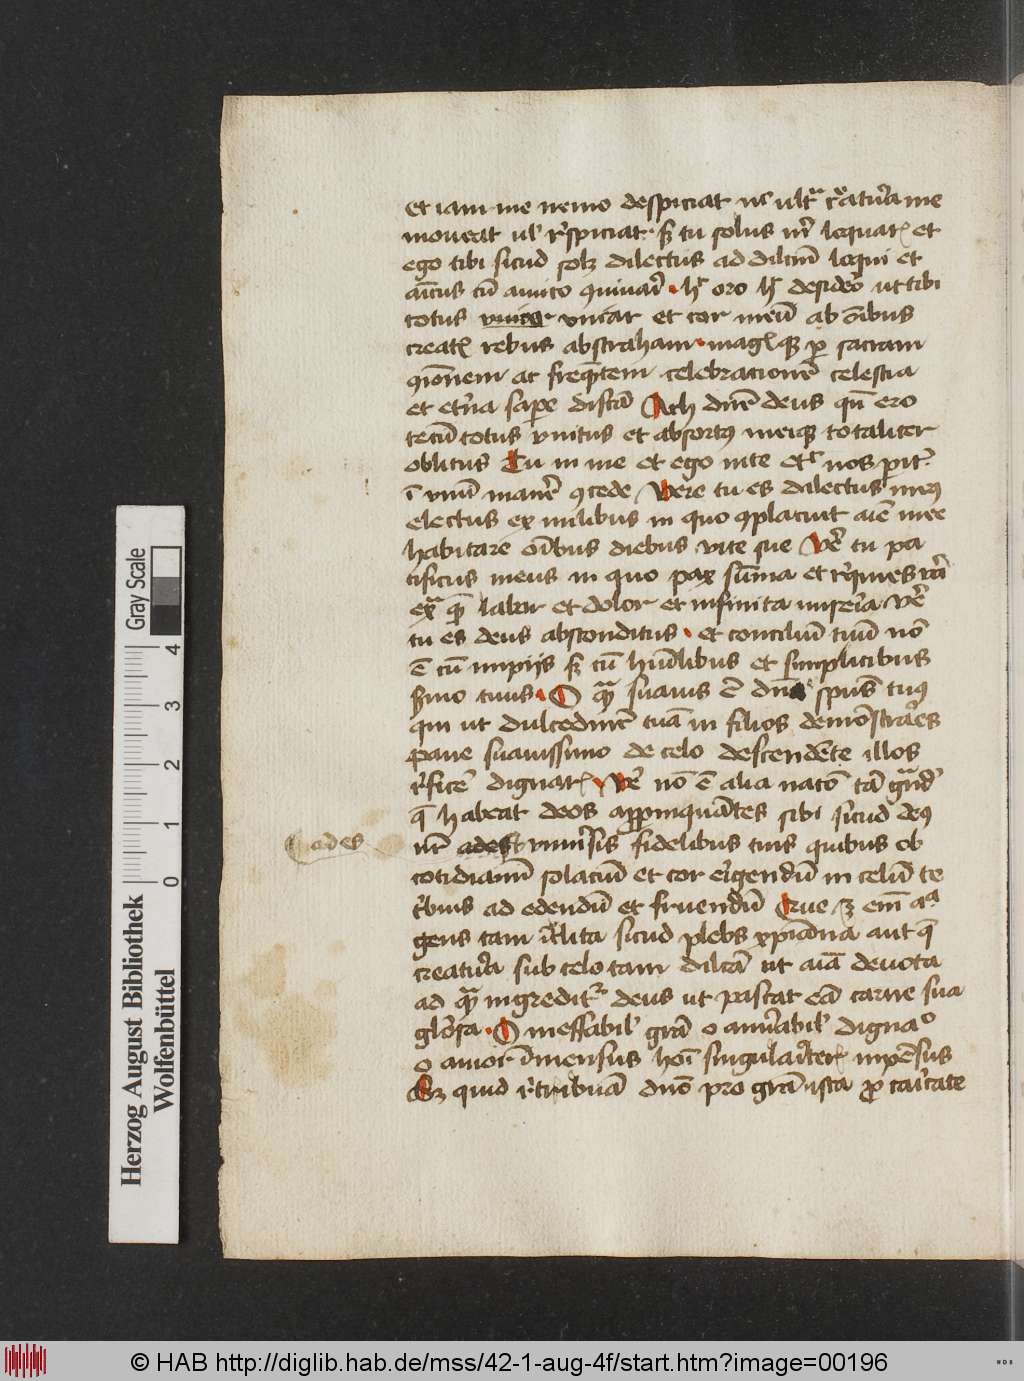 et iam me nemo despiciat nec ultra creatura me
moveat vel respiciat. sed tu solus michi loquaris et
ego tibi sicud solet dilectus ad dilectum loqui et
amicus cum amico convivari. hoc oro hoc desidero ut tibi
totus uniar et cor meum ab omnibus
creatis rebus abstraham. magisque per sacram
communionem ac frequentem celebracionem celestia
et eterna sapere discam Ach domine deus quando ero
tecum totus unitus et absortus meique totaliter
oblitus Tu in me et ego in te et sic nos pariter
in unum manere concede Vere tu es dilectus meus
electus ex milibus in quo complacuit anime mee
habitare omnibus diebus vite sue Vere tu pa
cificus meus in quo pax summa et requies vera
extra quem labor et dolor et infinita miseria Vere
tu es deus absconditus. et concilium tuum non
est cum impijs sed cum humilibus et simplicibus
sermo tuus. O quam suavis est domine spiritus tuus
qui ut dulcedinem tuam in filios demonstrares
pane suavissimo de celo descendente illos
reficere dignaris. Vere non est alia natio tam grandis
que habeat deos appropinquantes sibi sicud deus
noster adest universis fidelibus tuis quibus ob
ades
cotidianum solacium et cor erigendum in celum te
tribuis ad edendum et fruendum Que est enim alia
gens tam inclita sicud plebs christiana aut que
creatura sub celo tam dilecta ut anima devota
ad quam ingreditur deus ut pascat eam carne sua
gloriosa. O ineffabilis gratia o admirabilis dignacio
o amor inmensus homini singulariter impensus
Sed quid retribuam domino pro gratia ista pro caritate
Gray Scale
0 1 2 3 4
Herzog August Bibliothek
Wolfenbüttel
© HAB http://diglib.hab.de/mss/42-1-aug-4f/start.htm?image=00196